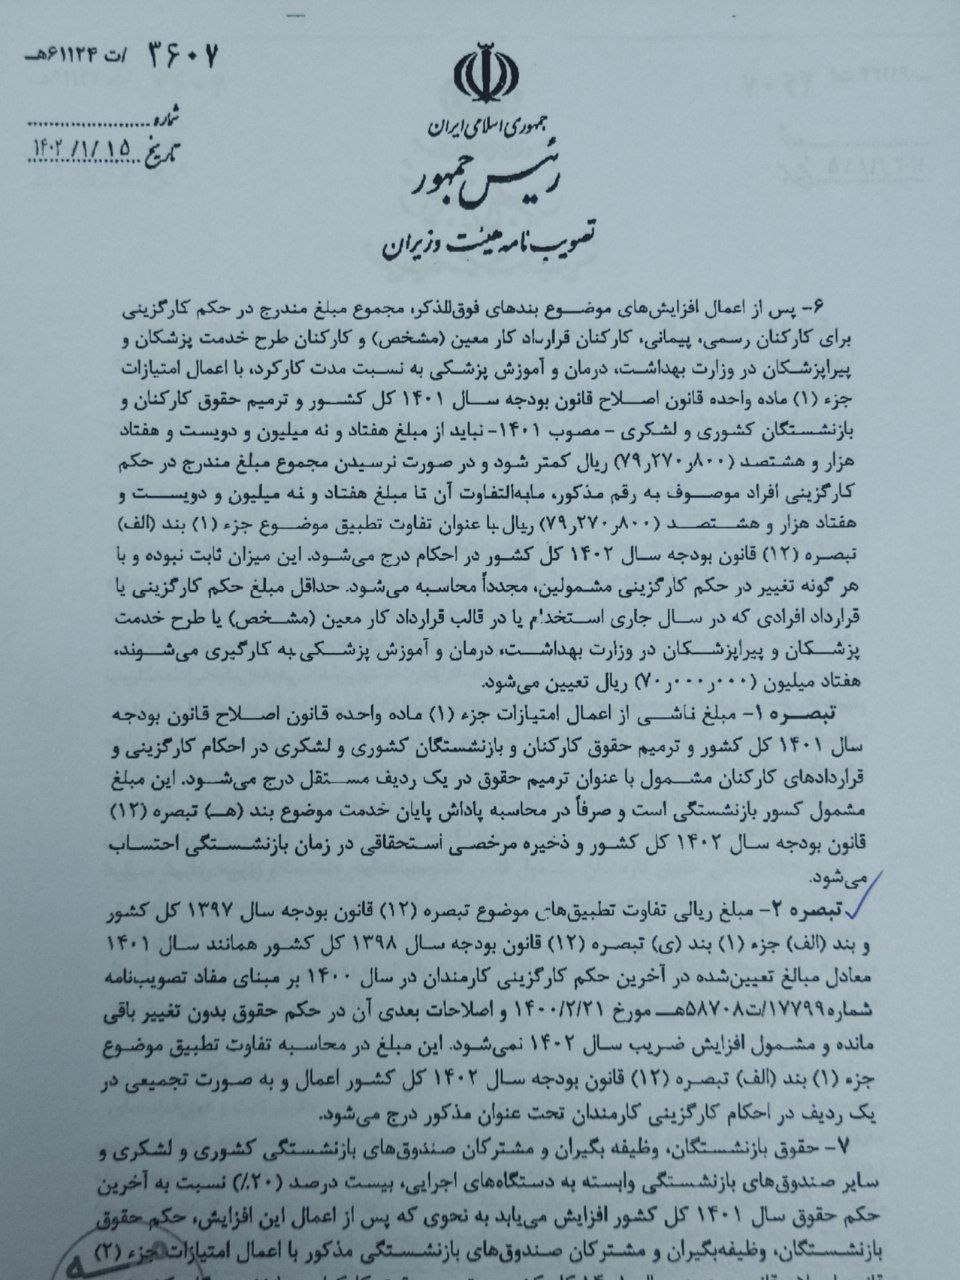 ۳۶۰۷ /ت ۶۱۱۲۴هـ
شماره
تاریخ ۱۴۰۲/۱/۱۵
جمهوری اسلامی ایران
رئیس جمهور
تصویب نامه هیئت وزیران
۶- پس از اعمال افزایش‌های موضوع بندهای فوق‌الذکر، مجموع مبلغ مندرج در حکم کارگزینی
برای کارکنان رسمی، پیمانی، کارکنان قرارداد کار معین (مشخص) و کارکنان طرح خدمت پزشکان و
پیراپزشکان در وزارت بهداشت، درمان و آموزش پزشکی به نسبت مدت کارکرد، با اعمال امتیازات
جزء (۱) ماده واحده قانون اصلاح قانون بودجه سال ۱۴۰۱ کل کشور و ترمیم حقوق کارکنان و
بازنشستگان کشوری و لشکری - مصوب ۱۴۰۱- نباید از مبلغ هفتاد و نه میلیون و دویست و هفتاد
هزار و هشتصد (۷۹٫۲۷۰٫۸۰۰) ریال کمتر شود و در صورت نرسیدن مجموع مبلغ مندرج در حکم
کارگزینی افراد موصوف به رقم مذکور، مابه‌التفاوت آن تا مبلغ هفتاد و نه میلیون و دویست و
هفتاد هزار و هشتصد (۷۹٫۲۷۰٫۸۰۰) ریال با عنوان تفاوت تطبیق موضوع جزء (۱) بند (الف)
تبصره (۱۲) قانون بودجه سال ۱۴۰۲ کل کشور در احکام درج می‌شود. این میزان ثابت نبوده و با
هر گونه تغییر در حکم کارگزینی مشمولین، مجدداً محاسبه می‌شود. حداقل مبلغ حکم کارگزینی یا
قرارداد افرادی که در سال جاری استخدام یا در قالب قرارداد کار معین (مشخص) یا طرح خدمت
پزشکان و پیراپزشکان در وزارت بهداشت، درمان و آموزش پزشکی به کارگیری می‌شوند،
هفتاد میلیون (۷۰٫۰۰۰٫۰۰۰) ریال تعیین می‌شود.
تبصره ۱- مبلغ ناشی از اعمال امتیازات جزء (۱) ماده واحده قانون اصلاح قانون بودجه
سال ۱۴۰۱ کل کشور و ترمیم حقوق کارکنان و بازنشستگان کشوری و لشکری در احکام کارگزینی و
قراردادهای کارکنان مشمول با عنوان ترمیم حقوق در یک ردیف مستقل درج می‌شود. این مبلغ
مشمول کسور بازنشستگی است و صرفاً در محاسبه پاداش پایان خدمت موضوع بند (هـ) تبصره (۱۲)
قانون بودجه سال ۱۴۰۲ کل کشور و ذخیره مرخصی استحقاقی در زمان بازنشستگی احتساب
می‌شود.
تبصره ۲- مبلغ ریالی تفاوت تطبیق‌های موضوع تبصره (۱۲) قانون بودجه سال ۱۳۹۷ کل کشور
و بند (الف) جزء (۱) بند (ی) تبصره (۱۲) قانون بودجه سال ۱۳۹۸ کل کشور همانند سال ۱۴۰۱
معادل مبالغ تعیین‌شده در آخرین حکم کارگزینی کارمندان در سال ۱۴۰۰ بر مبنای مفاد تصویب‌نامه
شماره ۱۷۷۹۹/ت۵۸۷۰۸هـ مورخ ۱۴۰۰/۲/۲۱ و اصلاحات بعدی آن در حکم حقوق بدون تغییر باقی
مانده و مشمول افزایش ضریب سال ۱۴۰۲ نمی‌شود. این مبلغ در محاسبه تفاوت تطبیق موضوع
جزء (۱) بند (الف) تبصره (۱۲) قانون بودجه سال ۱۴۰۲ کل کشور اعمال و به صورت تجمیعی در
یک ردیف در احکام کارگزینی کارمندان تحت عنوان مذکور درج می‌شود.
۷- حقوق بازنشستگان، وظیفه بگیران و مشترکان صندوق‌های بازنشستگی کشوری و لشکری و
سایر صندوق‌های بازنشستگی وابسته به دستگاه‌های اجرایی، بیست درصد (۲۰٪) نسبت به آخرین
حکم حقوق سال ۱۴۰۱ کل کشور افزایش می‌یابد به نحوی که پس از اعمال این افزایش، حکم حقوق
بازنشستگان، وظیفه‌بگیران و مشترکان صندوق‌های بازنشستگی مذکور با اعمال امتیازات جزء (۲)